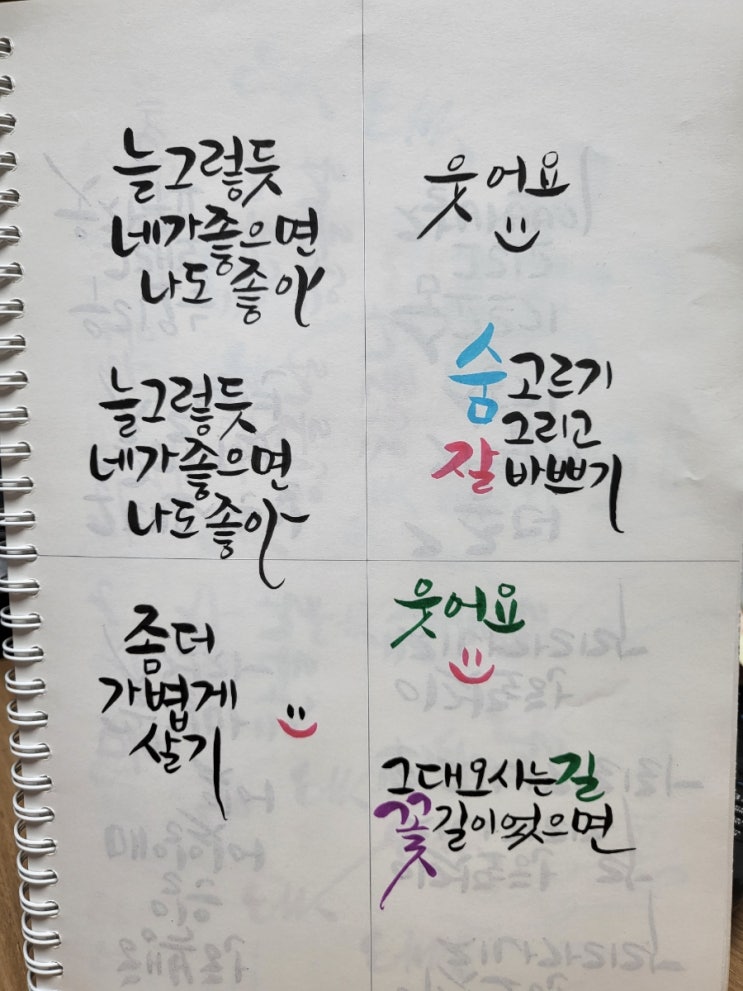 늘그렇듯
네가좋으면
나도좋아
늘그렇듯
네가좋으면
나도좋아
웃어요
숨고르기
그리고
잘바쁘기
좀더
가볍게
살기
웃어요
그대오시는길
꽃길이었으면